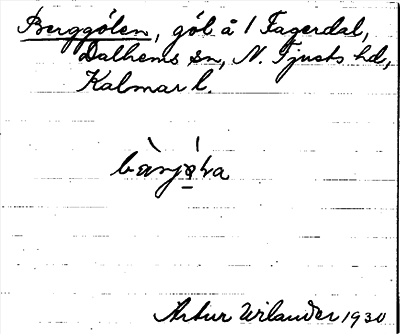 Berggölen, göl å 1 Fagerdal,
Dalhems sn, N. Tjusts hd,
Kalmar l.
Artur Wilander 1930